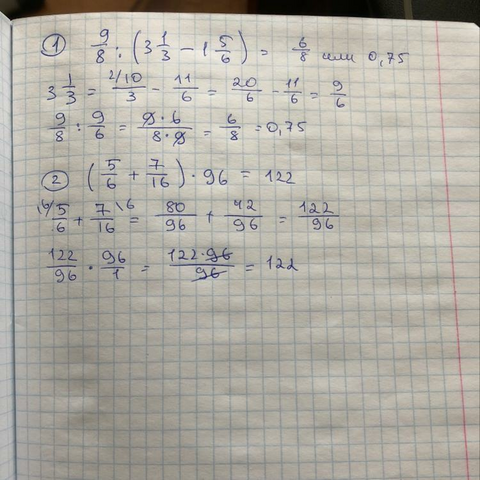 ① 9/8 : (3 1/3 - 1 5/6) = 6/8 или 0,75
3 1/3 = 2/10/3 - 11/6 = 20/6 - 11/6 = 9/6
9/8 : 9/6 = 9·6/8·9 = 6/8 = 0,75
② (5/6 + 7/16) · 96 = 122
16/5/6 + 7\6/16 = 80/96 + 42/96 = 122/96
122/96 · 96/1 = 122·96/96 = 122